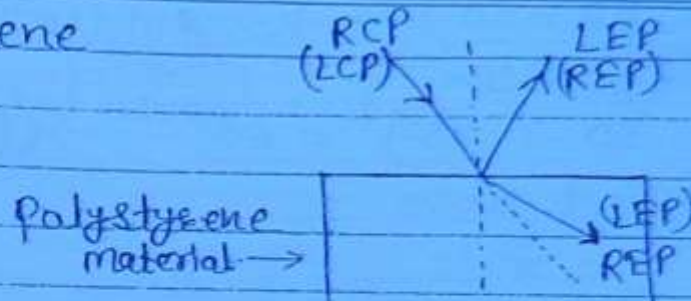 ene
RCP LEP
(LCP) (REP)
Polystyrene (LEP)
material → REP